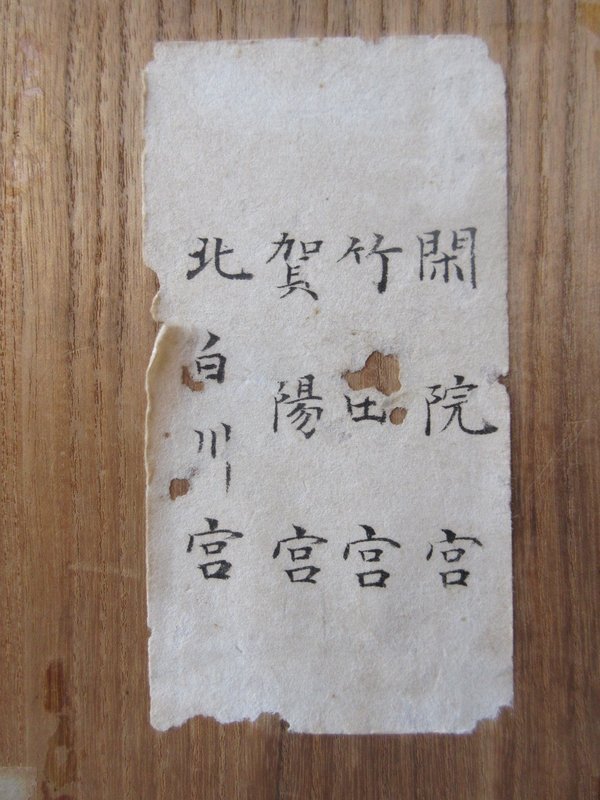 閑院宮
竹田宮
賀陽宮
北白川宮